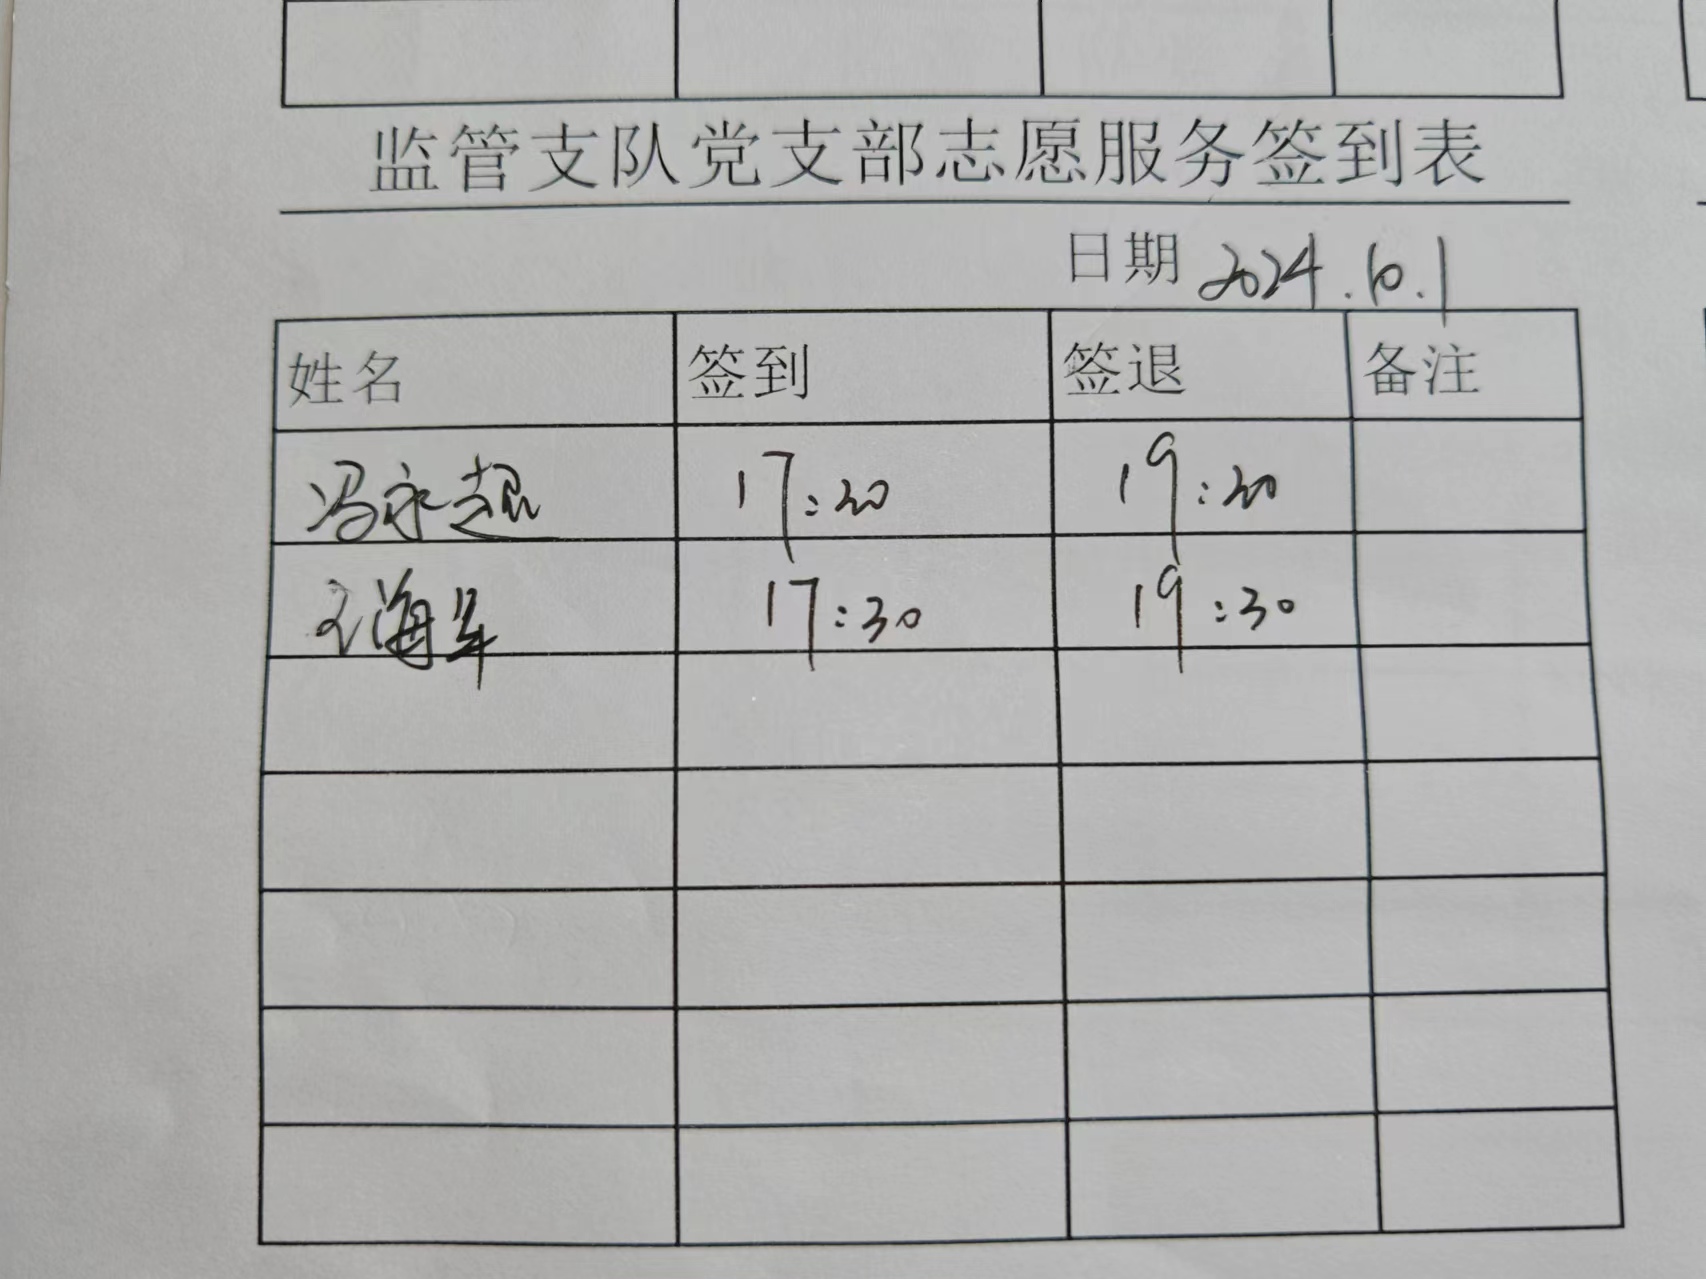 监管支队党支部志愿服务签到表
日期 2024.10.1
姓名 签到 签退 备注
冯永超 17:30 19:30
王海军 17:30 19:30